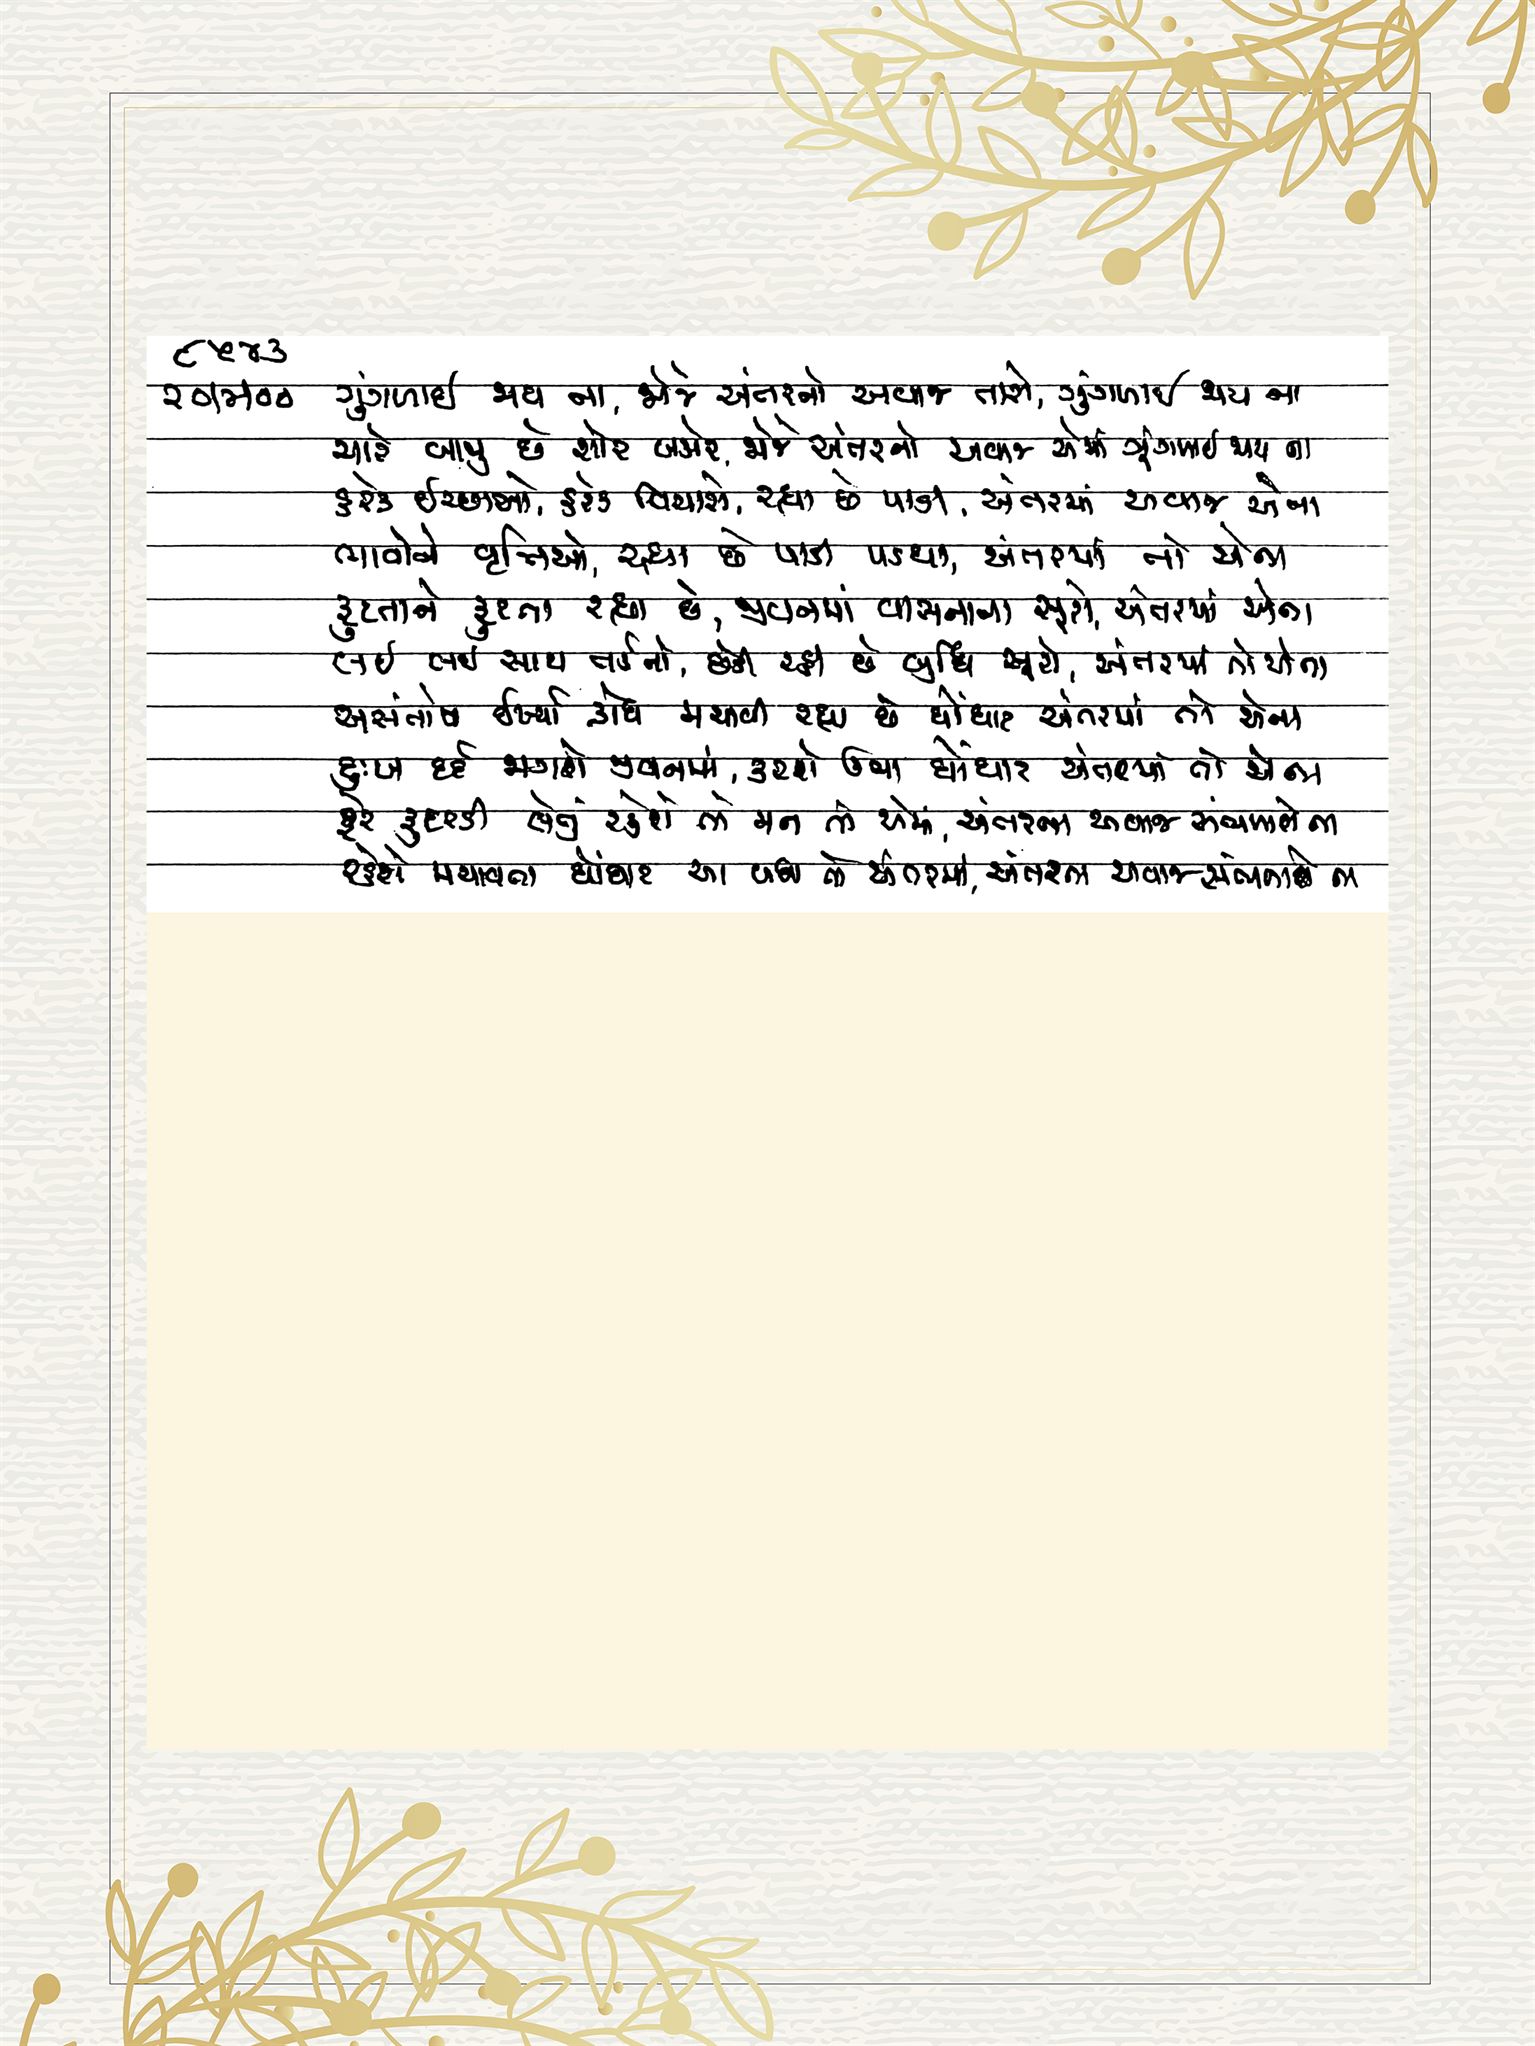 ૮૫૪૩
ગુંગળાઈ જાય ના, જોજે અંતરનો અવાજ તારો, ગુંગળાઈ જાય ના
ચારે બાજુ છે શોર બકોર, જોજે અંતરનો અવાજ એમાં ગૂંગળાઈ જાય ના
કરેક ઈચ્છાઓ, કરેક વિચારો, રહ્યા છે પાડી, અંતરમાં અવાજ એના
ભાવોને વૃત્તિઓ, રહ્યા છે પાડી પડઘા, અંતરમાં તો એના
ફુટતાને ફુટતા રહ્યા છે, જીવનમાં વાસનાના સૂરો, અંતરમાં એના
લઈ લઈ સાથ તર્કનો, છેડી રહી છે બુધ્ધિ સૂરો, અંતરમાં તો એના
અસંતોષ ઈર્ષ્યા ક્રોધ મચાવી રહ્યા છે ઘોંઘાટ અંતરમાં તો એના
દુઃખ દર્દ જગાવો જીવનમાં, કરશે ઊભા ઘોંઘાટ અંતરમાં તો એના
ફેર ફુદરડી લેતું રહેશે જો મન તો એમાં, અંતરના અવાજ સંભળાશે ના
રહેશે મચાવતા ઘોંઘાટ આ બધા જો અંતરમાં, અંતરના અવાજ સંભળાશે ના